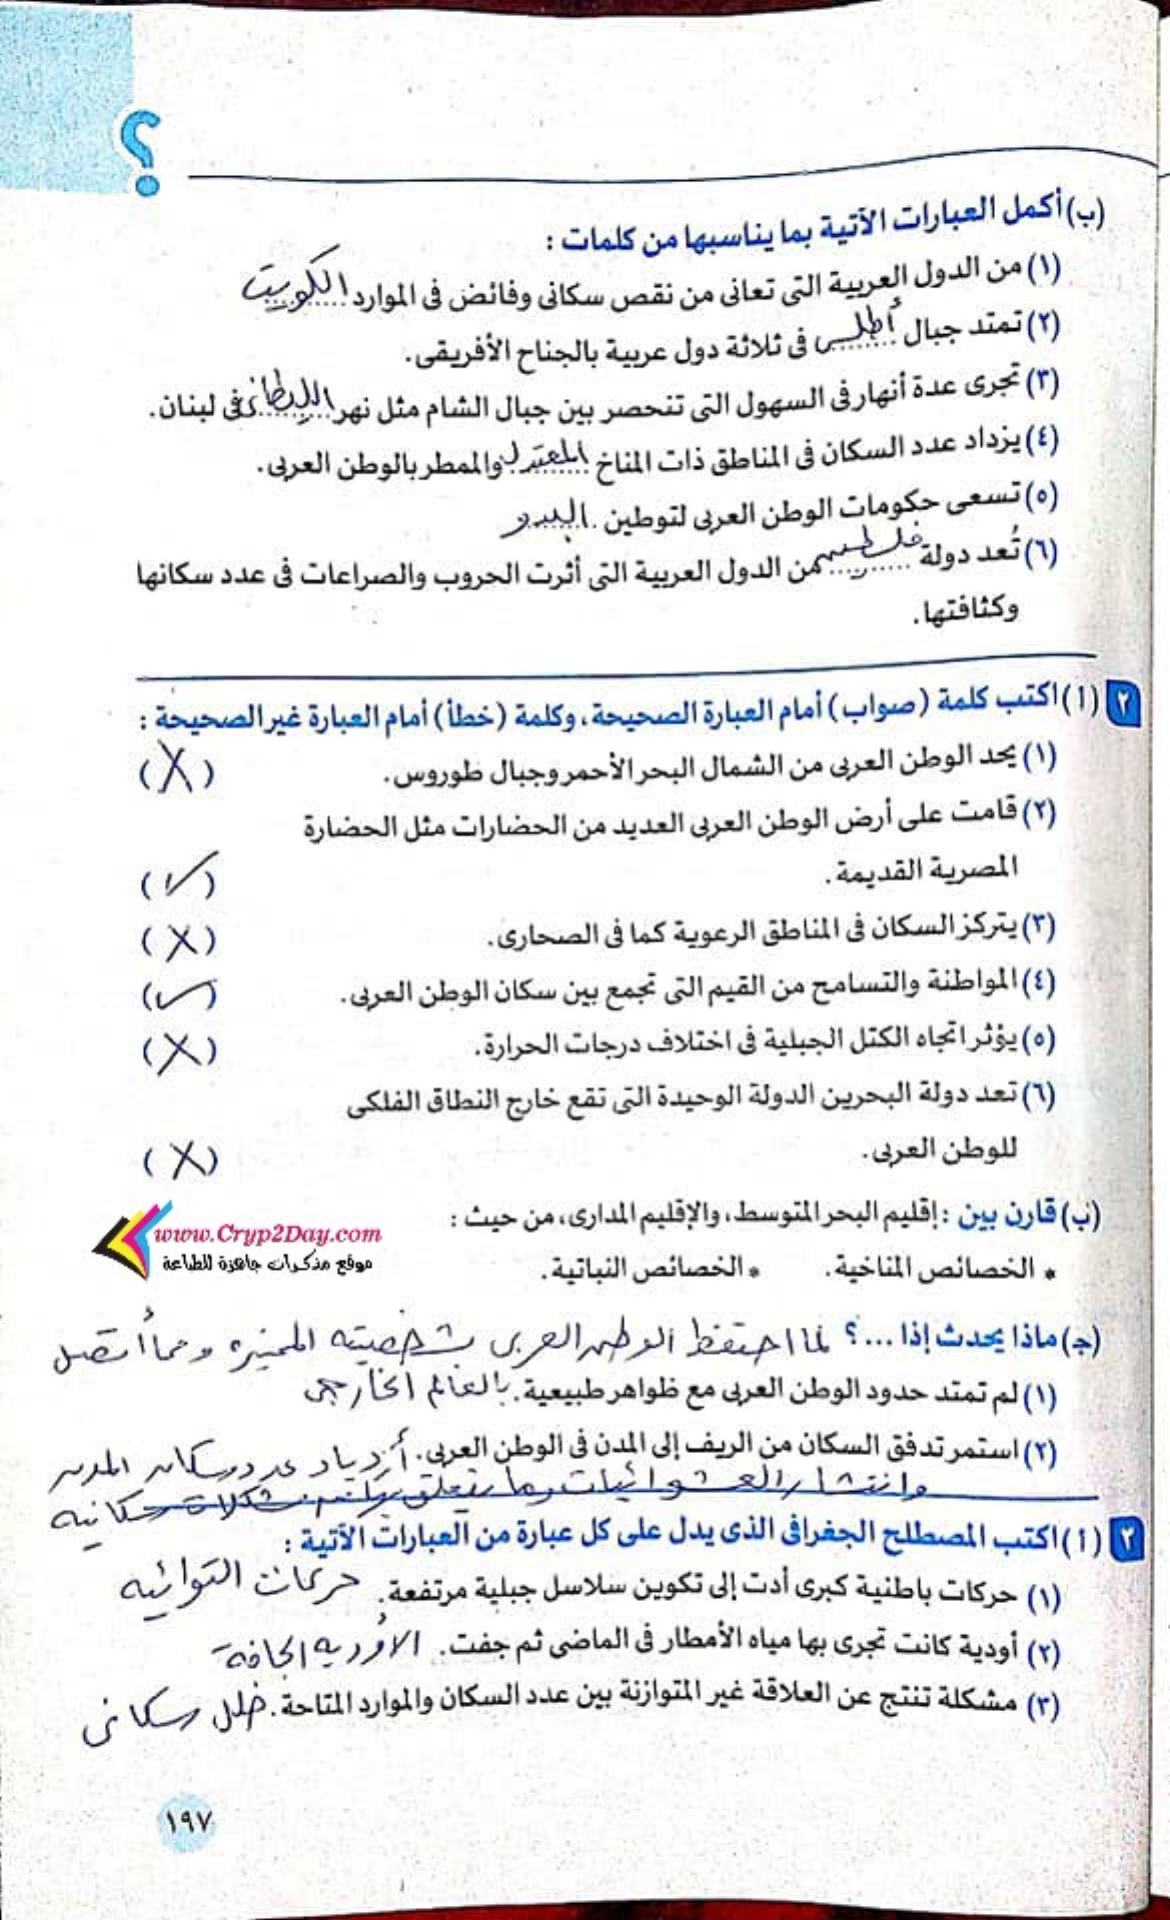 ؟
(ب) أكمل العبارات الآتية بما يناسبها من كلمات :
(١) من الدول العربية التى تعانى من نقص سكانى وفائض فى الموارد الكويت
(٢) تمتد جبال أطلس فى ثلاثة دول عربية بالجناح الأفريقى.
(٣) تجرى عدة أنهار فى السهول التى تنحصر بين جبال الشام مثل نهر الليطانى فى لبنان.
(٤) يزداد عدد السكان فى المناطق ذات المناخ المعتدل والممطر بالوطن العربى.
(٥) تسعى حكومات الوطن العربى لتوطين البدو
(٦) تُعد دولة فلسطين من الدول العربية التى أثرت الحروب والصراعات فى عدد سكانها
وكثافتها.
٢ (أ) اكتب كلمة (صواب) أمام العبارة الصحيحة، وكلمة (خطأ) أمام العبارة غير الصحيحة :
(١) يحد الوطن العربى من الشمال البحر الأحمر وجبال طوروس. (X)
(٢) قامت على أرض الوطن العربى العديد من الحضارات مثل الحضارة
المصرية القديمة. (✓)
(٣) يتركز السكان فى المناطق الرعوية كما فى الصحارى. (X)
(٤) المواطنة والتسامح من القيم التى تجمع بين سكان الوطن العربى. (✓)
(٥) يؤثر اتجاه الكتل الجبلية فى اختلاف درجات الحرارة. (X)
(٦) تعد دولة البحرين الدولة الوحيدة التى تقع خارج النطاق الفلكى
للوطن العربى. (X)
(ب) قارن بين : إقليم البحر المتوسط، والإقليم المدارى، من حيث :
* الخصائص المناخية. * الخصائص النباتية.
www.Cryp2Day.com
موقع مذكرات جاهزة للطباعة
(ج) ماذا يحدث إذا ...؟ لما احتفظ الوطن العربى بشخصيته المميزة وما أتصل
(١) لم تمتد حدود الوطن العربى مع ظواهر طبيعية. بالعالم الخارجى
(٢) استمر تدفق السكان من الريف إلى المدن فى الوطن العربى. أزدياد عدد سكان المدن
وانتشار العشوائيات وما يتعلق بها من مشكلات سكانية
٣ (أ) اكتب المصطلح الجغرافى الذى يدل على كل عبارة من العبارات الآتية :
(١) حركات باطنية كبرى أدت إلى تكوين سلاسل جبلية مرتفعة. حركات التوائية
(٢) أودية كانت تجرى بها مياه الأمطار فى الماضى ثم جفت. الأودية الجافة
(٣) مشكلة تنتج عن العلاقة غير المتوازنة بين عدد السكان والموارد المتاحة. خلل سكانى
١٩٧